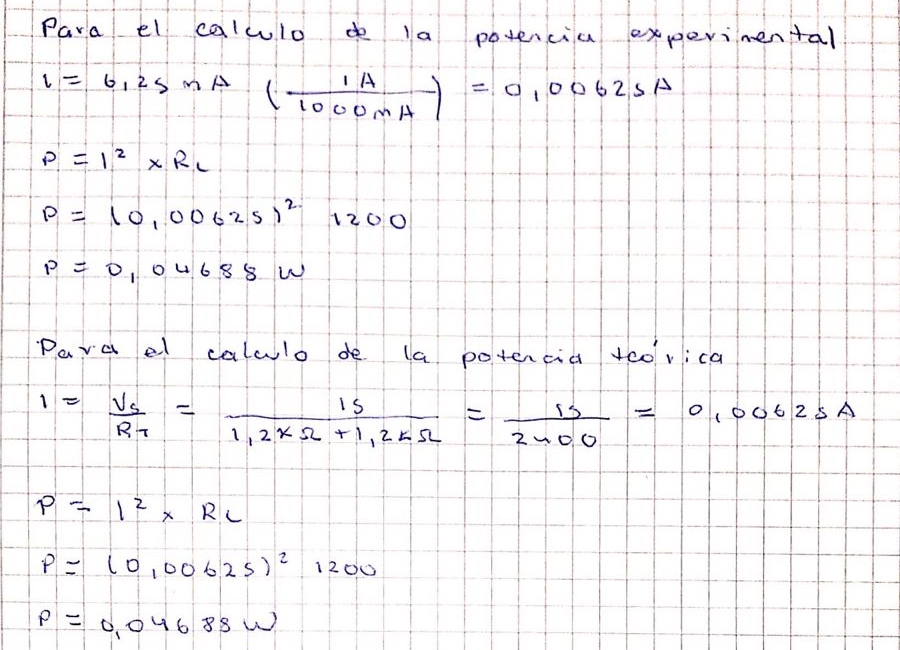 Para el calculo de la potencia experimental
I = 6,25 mA (1 A / 1000 mA) = 0,00625 A
P = I² x RL
P = (0,00625)² 1200
P = 0,04688 W
Para el calculo de la potencia teórica
I = Vs / RT = 15 / 1,2KΩ + 1,2KΩ = 15 / 2400 = 0,00625 A
P = I² x RL
P = (0,00625)² 1200
P = 0,04688 W